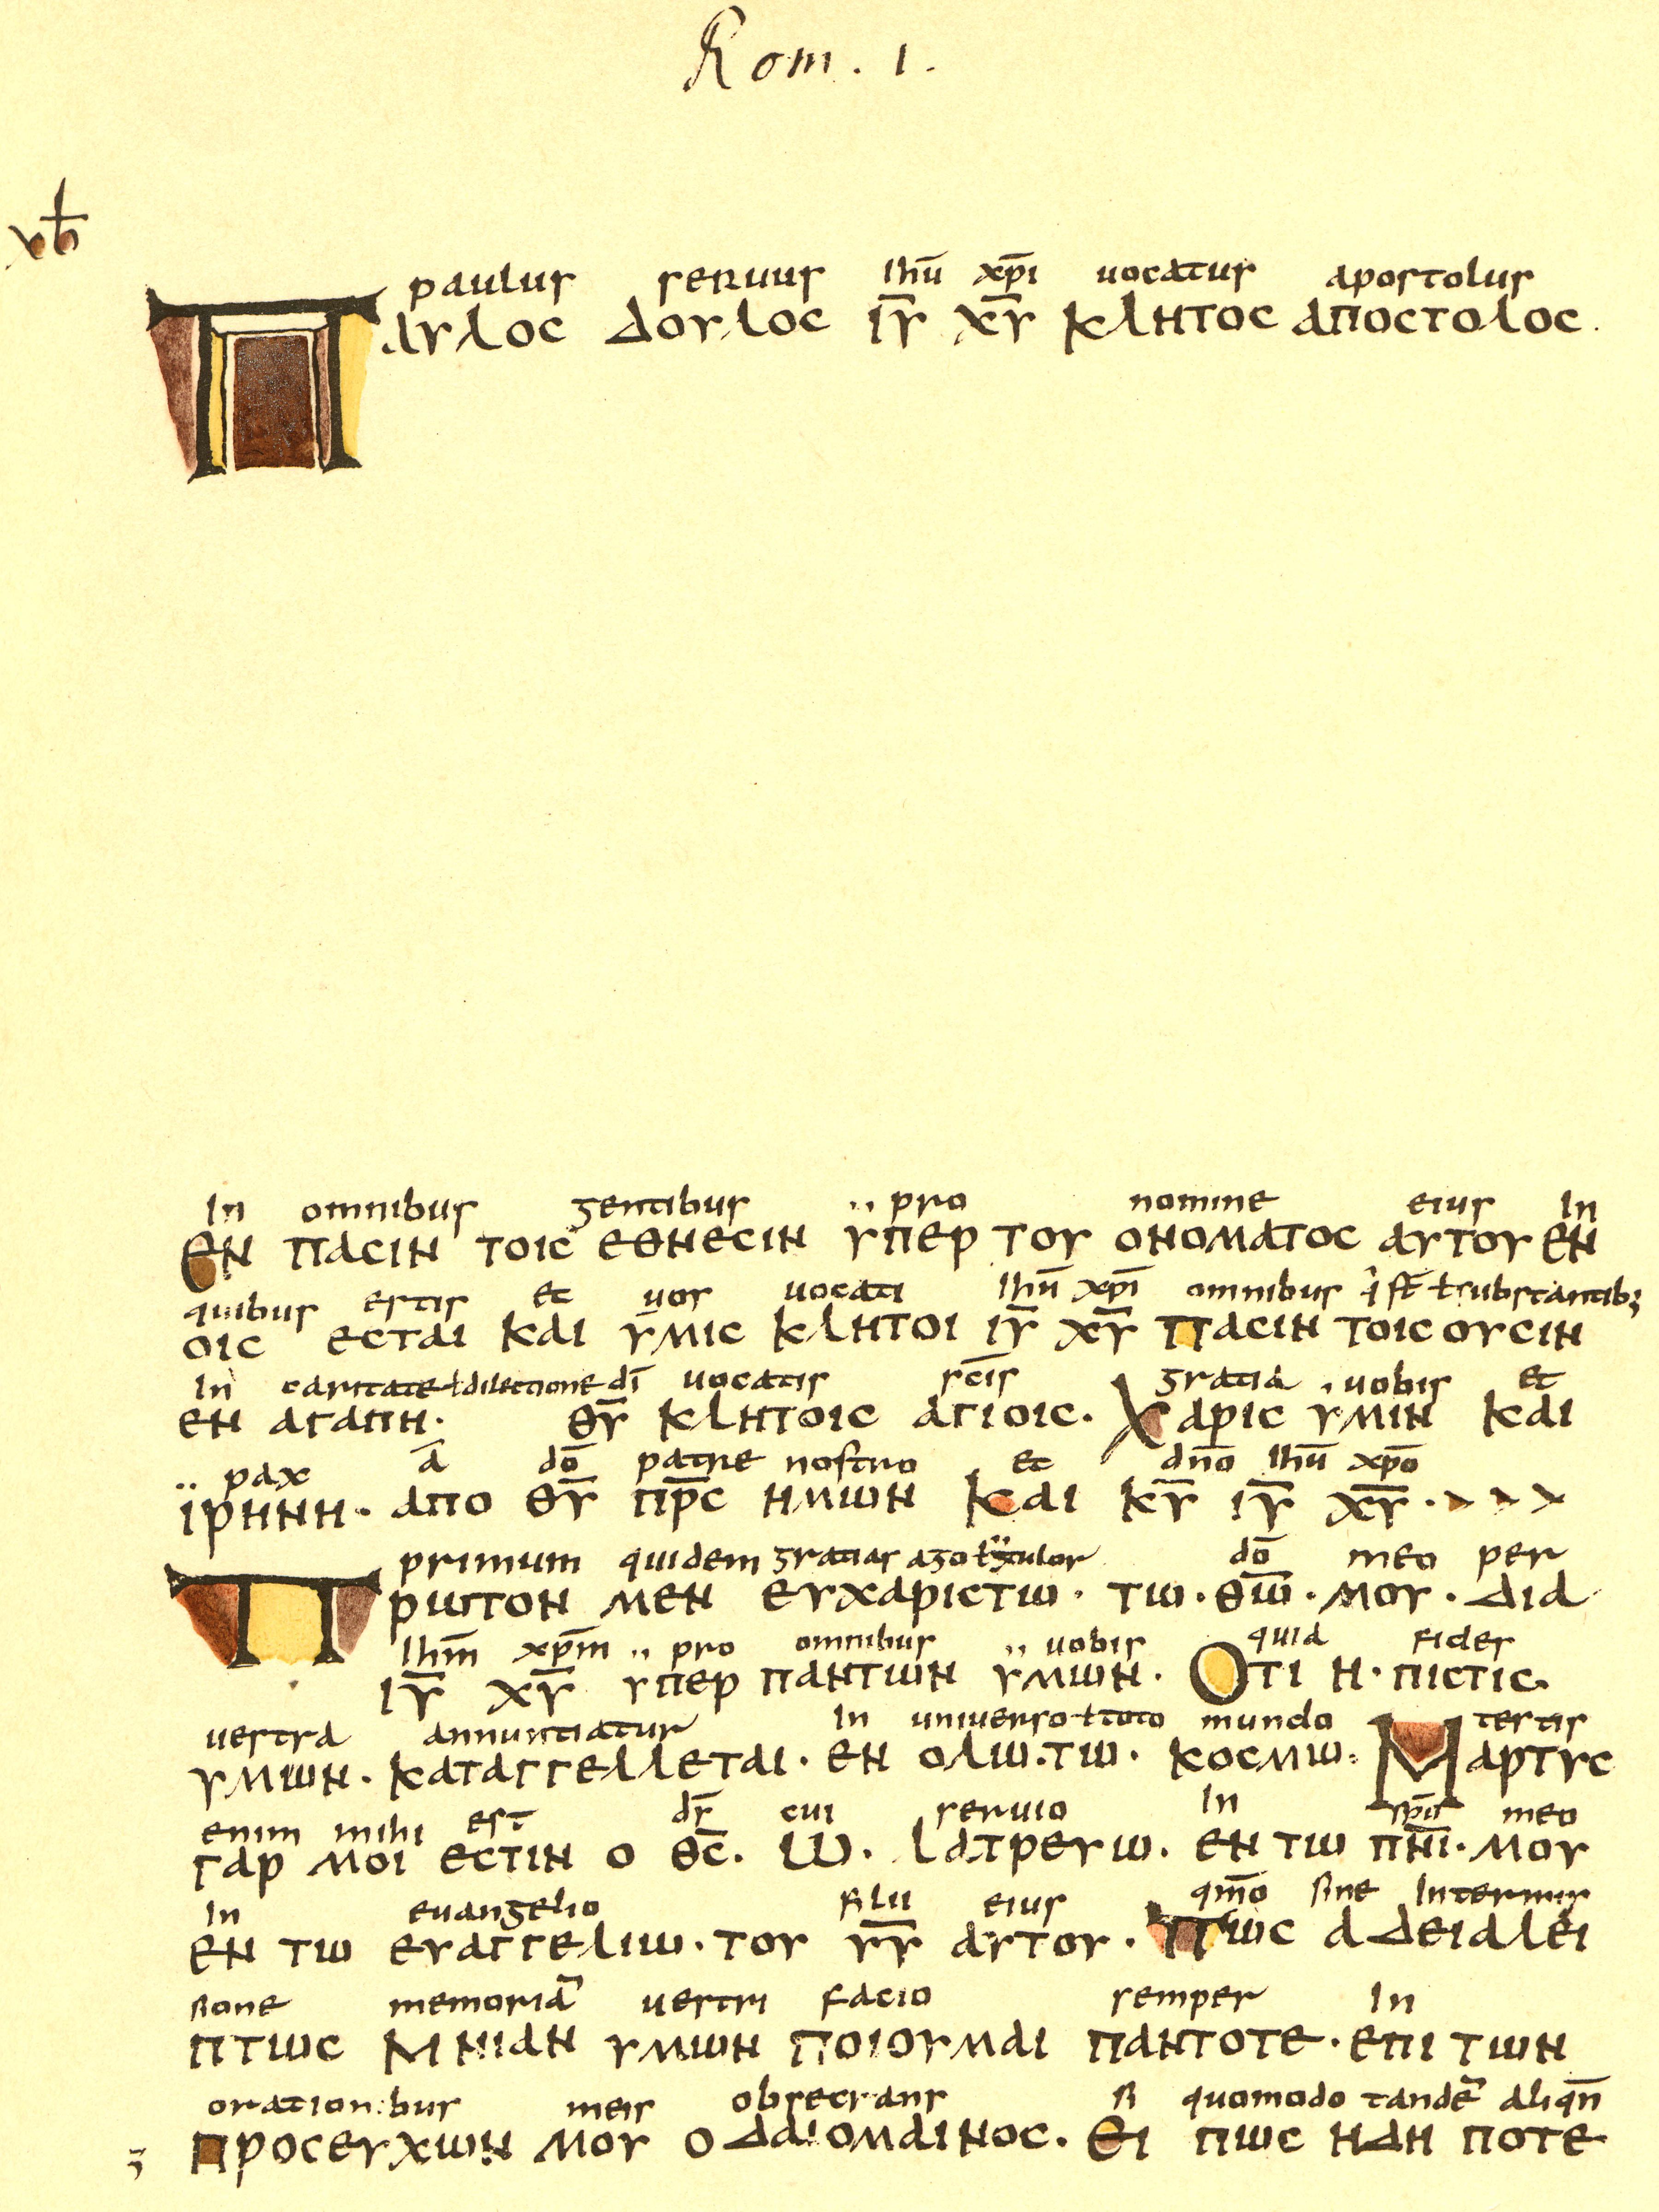 Rom. 1.
paulus seruus ihū xp̄i uocatus apostolus
ΠΑΥΛΟC ΔΟΥΛΟC ΙΥ̅ ΧΥ̅ ΚΛΗΤΟC ΑΠΟCΤΟΛΟC.
In omnibus gentibus ·· pro nomine eius In
ΕΝ ΠΑCΙΝ ΤΟΙC ΕΘΝΕCΙΝ ΥΠΕΡ ΤΟΥ ΟΝΟΜΑΤΟC ΑΥΤΟΥ ΕΝ
quibus estis et uos uocati ihū xp̄i omnibus ł substantib;
ΟΙC ΕCΤΑΙ ΚΑΙ ΥΜΙC ΚΛΗΤΟΙ ΙΥ̅ ΧΥ̅ ΠΑCΙΝ ΤΟΙC ΟΥCΙΝ
In caritate ł dilectione dī uocatis sc̄is gratia uobis et
ΕΝ ΑΓΑΠΗ· ΘΥ̅ ΚΛΗΤΟΙC ΑΓΙΟΙC. ΧΑΡΙC ΥΜΙΝ ΚΑΙ
·· pax ā dō patre nostro et dn̄o ihū xp̄o
ΙΡΗΝΗ· ΑΠΟ ΘΥ̅ ΠΡ̅C ΗΜΩΝ ΚΑΙ ΚΥ̅ ΙΥ̅ ΧΥ̅ · > > >
primum quidem gratias ago dō meo per
ΠΡΩΤΟΝ ΜΕΝ ΕΥΧΑΡΙCΤΩ· ΤΩ· ΘΩ̅· ΜΟΥ· ΔΙΑ
ihm̄ xp̄m ·· pro omnibus ·· uobis quia fides
ΙΥ̅ ΧΥ̅ ΥΠΕΡ ΠΑΝΤΩΝ ΥΜΩΝ· ΟΤΙ Η· ΠΙCΤΙC.
uestra annuntiatur In uniuerso ł toto mundo testis
ΥΜΩΝ· ΚΑΤΑΓΓΕΛΛΕΤΑΙ· ΕΝ ΟΛΩ. ΤΩ· ΚΟCΜΩ: ΜΑΡΤΥC
enim mihi est ds̄ cui seruio In sp̄u meo
ΓΑΡ ΜΟΙ ΕCΤΙΝ Ο ΘC̅. Ω. ΛΑΤΡΕΥΩ. ΕΝ ΤΩ ΠΝ̅Ι· ΜΟΥ
In euangelio filii eius qm̄o sine Intermis
ΕΝ ΤΩ ΕΥΑΓΓΕΛΙΩ· ΤΟΥ ΥΥ̅ ΑΥΤΟΥ· ΠΩC ΑΔΕΙΑΛΕΙ
sione memoriā uestri facio semper In
ΠΤΩC ΜΝΙΑΝ ΥΜΩΝ ΠΟΙΟΥΜΑΙ ΠΑΝΤΟΤΕ· ΕΠΙ ΤΩΝ
orationibus meis obsecrans si quomodo tandē aliqn̄
ΠΡΟCΕΥΧΩΝ ΜΟΥ Ο ΔΑΙΟΜΑΙΝΟC. ΕΙ ΠΩC ΗΔΗ ΠΟΤΕ